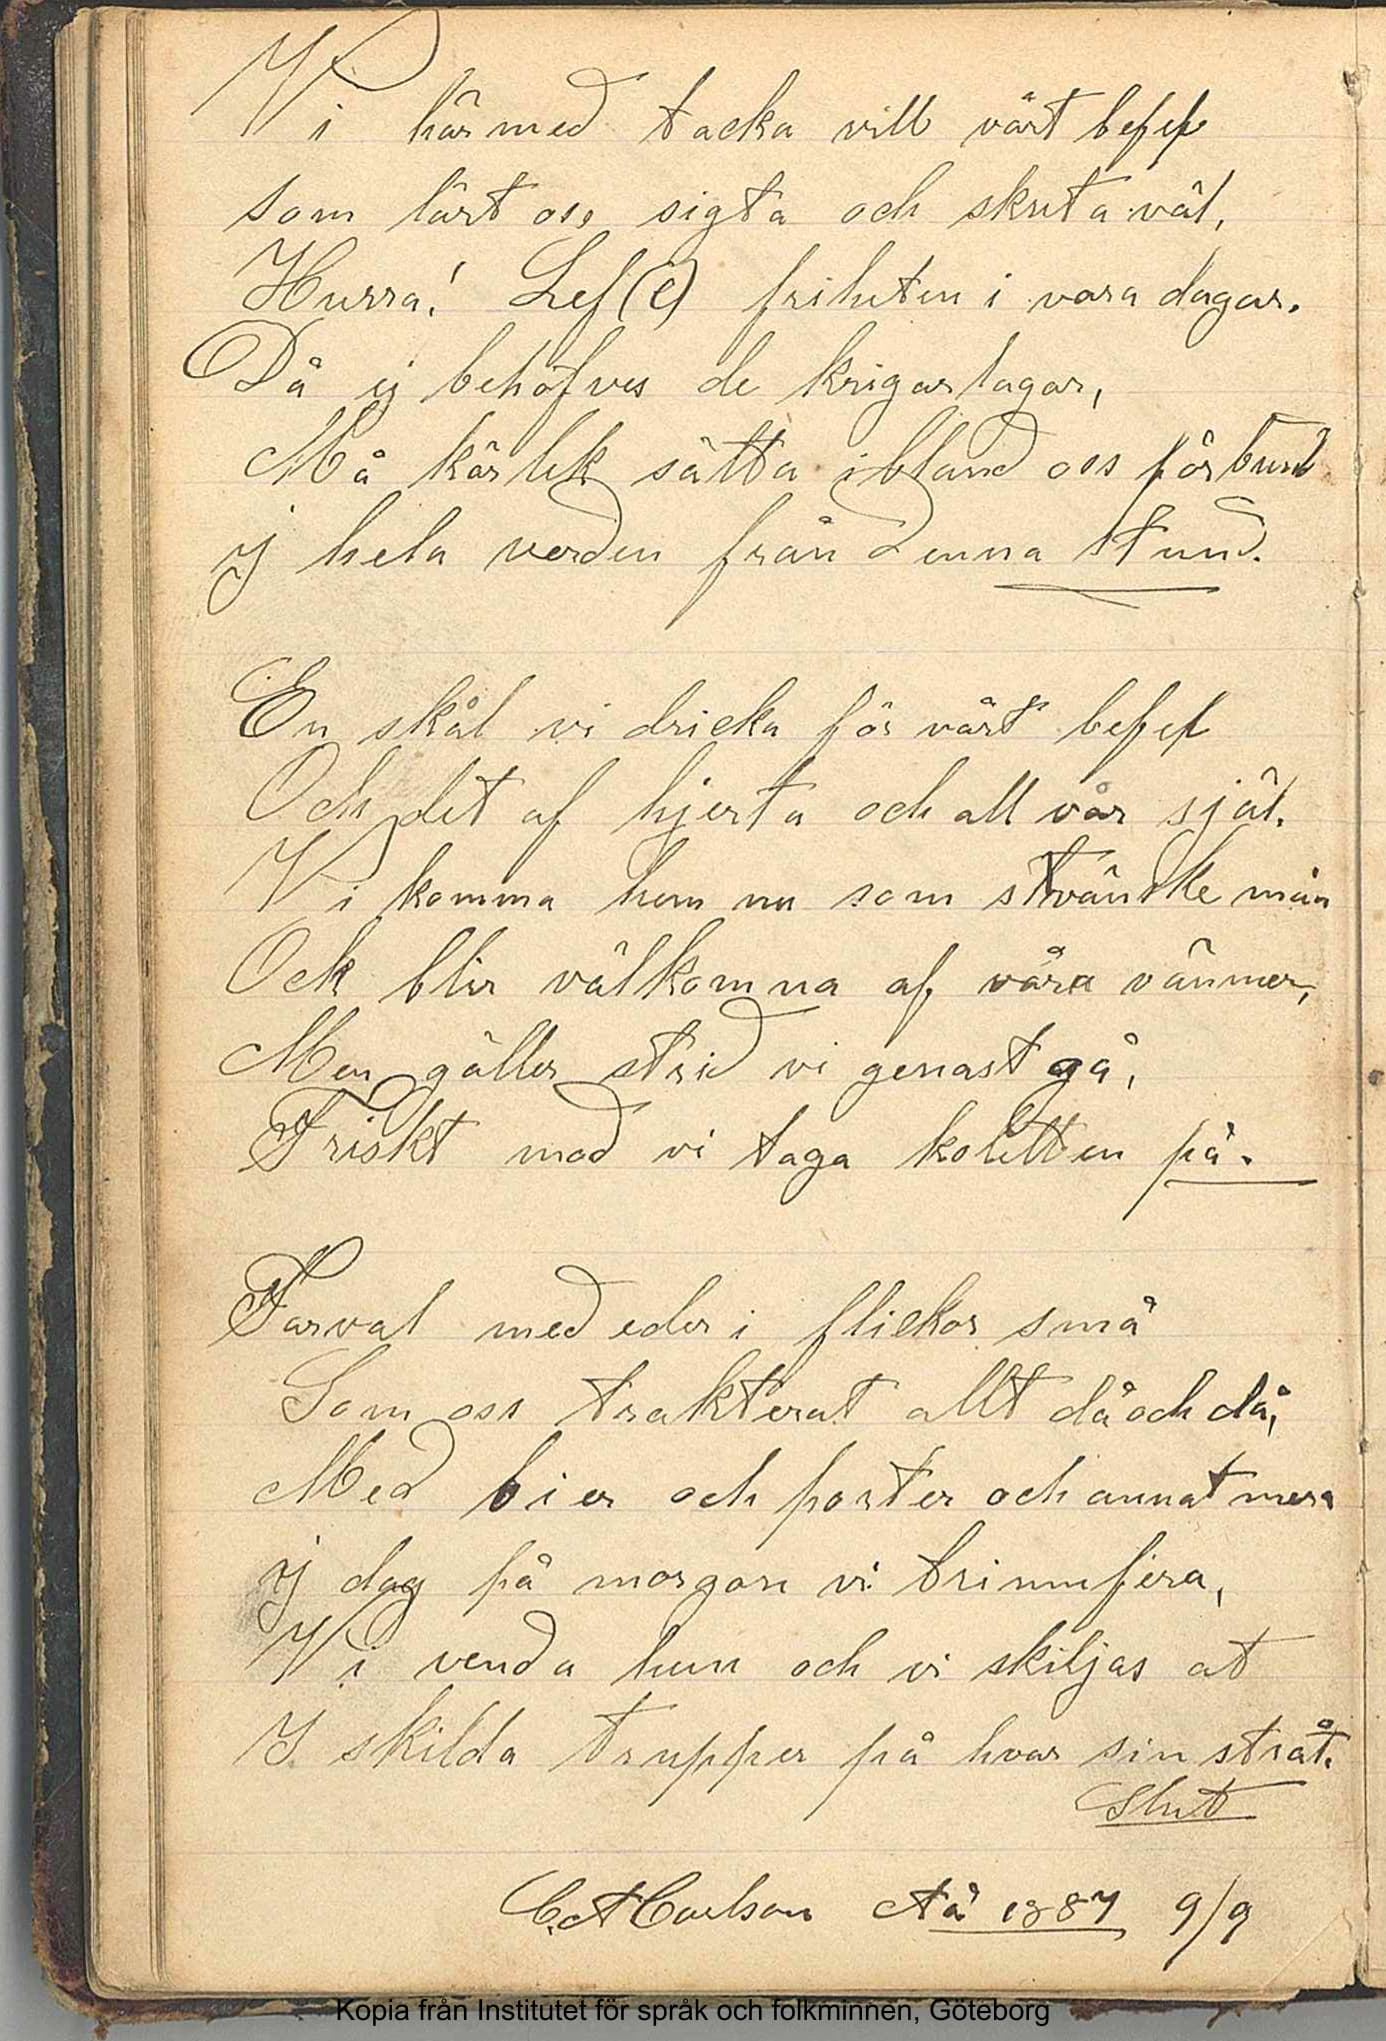 Vi härmed tacka vill vårt befel
som lärt oss sigta och skuta väl,
Hurra! Lef(e) friheten i vara dagar.
Då ej behöfves de krigarlagar,
Må kärlek sätta ibland oss förbund
ij hela verden från denna stund.
En skål vi dricka för vårt befel
Och det af hjerta och all vår själ.
Vi komma hem nu som män
Ock blir välkomna af våra vänner,
Men gäller strid vi genast gå,
Friskt mod vi taga koletten på.
Farval med eder i flickor små
Som oss trakterat allt då och då,
Med bier och porter och annat mera
ij dag på morgon vi triumfera,
Vi venda hem och vi skiljas at
I skilda trupper på hvar sin stråt.
Slut
C.A Carlson År 1887 9/9
Kopia från Institutet för språk och folkminnen, Göteborg